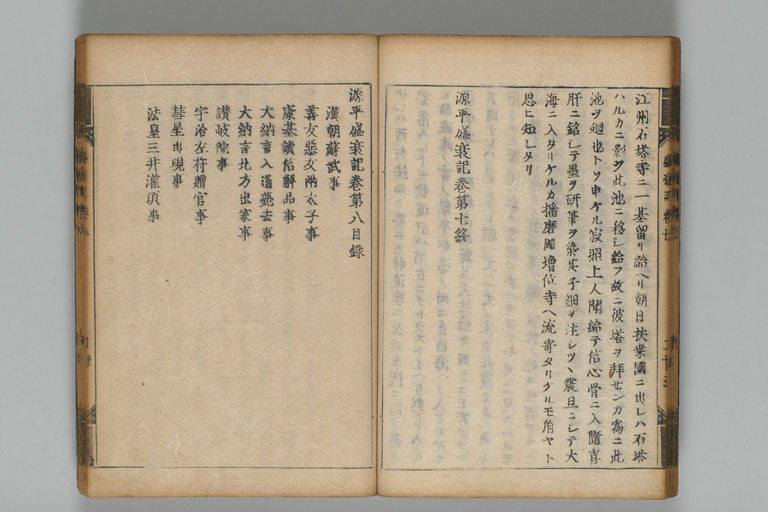 江州石塔寺ニ一基留リ給ヘリ朝日扶桒國ニ出レハ石塔
ハルカニ影ヲ此池ニ移シ給フ故ニ彼塔ヲ拜センカ爲ニ此
池ヲ廻也トソ申ケル寂照上人聞給テ信心骨ニ入隨喜
肝ニ銘シテ墨ヲ研筆ヲ染其子細ヲ注シツヽ震旦ニシテ大
海ニ入タリケルカ播磨國増位寺ヘ流寄タリケルモ角ヤト
思ヒ知レタリ
源平盛衰記卷第七終
源平盛衰記卷第八目録
漢朝蘇武事
善友惡友兩太子事
康基讀信解品事
大納言入道薨去事
大納言北方出家事
讃岐院事
宇治左府贈官事
彗星出現事
法皇三井灌頂事